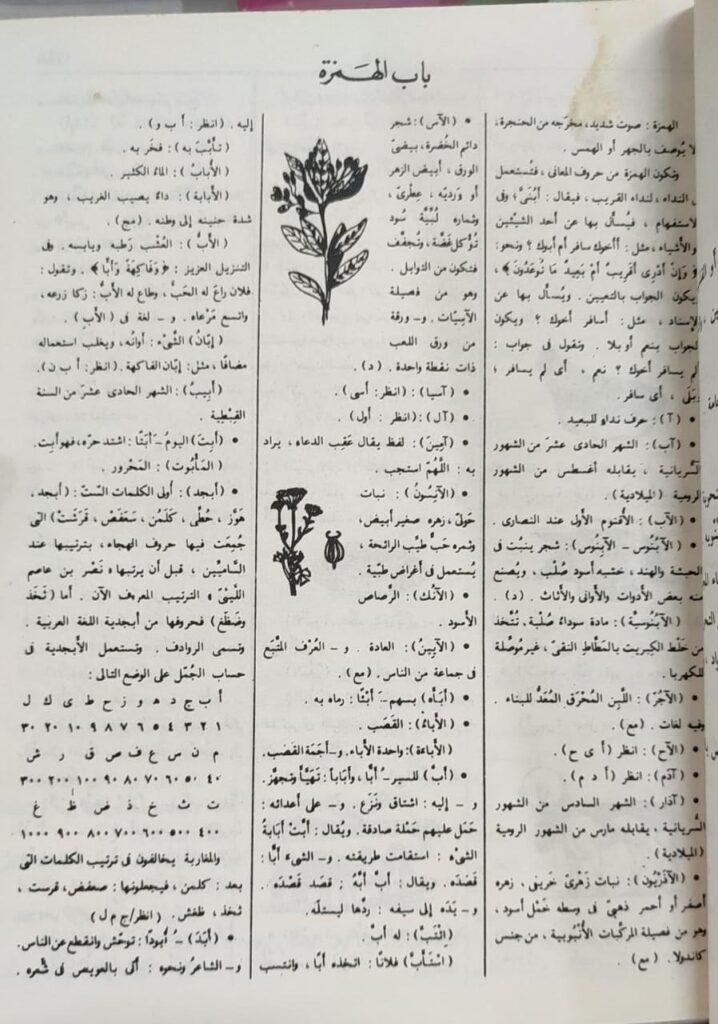 باب الهمزة
الهمزة : صوت شديد، مخرجه من الحنجرة،
لا يُوصف بالجهر أو الهمس .
وتكون الهمزة من حروف المعانى ، فتُستعمل
النداء، لنداء القريب ، فيقال : أبُنَىَّ؛ وفى
لاستفهام ، فيُسأل بها عن أحد الشيئين
والأشياء ، مثل : أأخوك سافر أم أبوك ؟ ونحو:
﴿ وَإِنْ أَدْرِى أَقَرِيبٌ أَمْ بَعِيدٌ مَا تُوعَدُونَ ﴾ ،
يكون الجواب بالتعيين . ويُسأل بها عن
لإسناد ، مثل : أسافر أخوك ؟ ويكون
لجواب بنعم أو بلا . وتقول فى جواب :
لم يسافر أخوك ؟ نعم ، أى لم يسافر ؛
بَلَى ، أى سافر .
• (آ) : حرف نداءٍ للبعيد .
• (آب) : الشهر الحادى عشرَ من الشهور
السُّريانية ، يقابله أغسطس من الشهور
الرومية (الميلادية) .
• (الآب) : الأقنوم الأول عند النصارى .
• (الآبَنُوس – الآبِنُوس) : شجر ينبُت فى
الحبشة والهند ، خشبه أسود صُلب ، ويُصنع
منه بعض الأدوات والأوانى والأثاث . (د) .
(الآبَنُوسيّة) : مادة سوداءُ صُلبة، تُتَّخذ
من خَلْط الكبريت بالمَطَّاطِ النقىّ ، غير مُوصِّلة
للكهربا .
• (الآجُرّ) : اللَّبِن المُحْرَق المُعَدُّ للبناء .
وفيه لغات . (مع) .
• (الآح) : انظر (أ ى ح) .
• (آدَم) : انظر (أ د م) .
• (آذار) : الشهر السادس من الشهور
السُّريانية ، يقابله مارس من الشهور الرومية
(الميلادية) .
• (الآذَرْيُون) : نبات زَهْرىّ خريفى . زهره
أصفر أو أحمر ذهبىّ فى وسطه خَمْل أسود ،
وهو من فصيلة المركَّبات الأُنْبُوبية ، من جنس
كاندولا . (مع) .
• (الآس) : شجر
دائم الخُضرة، بيضىّ
الورق ، أبيض الزهر
أو وَرديّه ، عِطْرى ،
وثماره لُبِّيّة سُود
تُؤكل غَضّة ، وتُجفَّف
فتكون من التوابل .
وهو من فصيلة
الآسِيّات . و– ورقة
من ورق اللعب
ذات نقطة واحدة . (د) .
• (آسيا) : (انظر : أسى) .
• (آل) : (انظر : أول) .
• (آمِينَ) : لفظ يقال عَقِب الدعاء ، يراد
به : اللَّهُمّ استجب .
• (الآنِيسُونُ) : نبات
حَوْلى ، زهره صغير أبيض ،
وثمره حَبّ طيِّب الرائحة ،
يُستعمل فى أغراض طبّية .
• (الآنُك) : الرَّصاص
الأسود .
• (الآيِينُ) : العادة . و– العُرْف المتَّبَع
فى جماعة من الناس . (مع) .
• (أبَأَه) بسهم –َ أَبْئًا : رماه به .
• (الأَبَاءُ) : القَصَب .
(الأَباءة) : واحدة الأباء. و– أجَمَة القَصَب.
• (أَبَّ) للسير –ُ أبًّا ، وأَبَاباً : تهيَّأ وتجهّز .
و – إليه : اشتاق ونَزَع . و – على أعدائه :
حَمَل عليهم حَمْلة صادقة . ويُقال : أبَّتْ أَبَابةُ
الشىء : استقامت طريقته . و – الشىءَ أبًّا :
قَصَدَه . ويقال : أبَّ أَبَّهُ ؛ قصَد قَصْدَه .
و – يَدَه إلى سيفه : ردّها ليستلّه .
(ائْتَبَّ) : له أبَّ .
(اسْتَأَبَّ) فلانًا : اتخذه أبًا ، وانتسب
إليه . (انظر : أ ب و) .
(تأبَّبَ به) : فخَر به .
(الأُبابُ) : الماءُ الكثير .
(الأَبَابة) : داءٌ يصيب الغريب ، وهو
شدة حنينه إلى وطنه . (مج) .
(الأَبُّ) : العُشْب رَطبه ويابسه . وفى
التنزيل العزيز : ﴿وَفَاكِهَةً وَأَبًّا﴾ . وتقول :
فلان راعَ له الحَبُّ ، وطاع له الأبُّ : زكا زرعه ،
واتسع مَرْعاه . و – لغة فى (الأبِ) .
(إبَّانُ) الشَّىْءِ : أوانُه ، ويغلب استعماله
مضافًا ، مثل : إبّان الفاكهة . (انظر : أ ب ن) .
(أبيبُ) : الشهر الحادى عشرَ من السنة
القِبْطِية .
• (أبِتَ) اليومُ –َ أَبَتًا : اشتد حرّه، فهو أبِت .
(المَأْبُوت) : المَحْرُور .
• (أبجد) : أولى الكلمات السّت : (أبجد ،
هَوَّز ، حُطِّى ، كَلَمُن ، سَعْفَص ، قَرَشَتْ) التى
جُمِعَت فيها حروف الهجاء ، بترتيبها عند
السّاميِّين ، قبل أن يرتبها « نَصْر بن عاصم
اللَّيثىّ » الترتيب المعروف الآن . أما (ثَخَذ
وضَظَغ) فحروفها من أبجدية اللغة العربية .
وتسمى الروادف . وتستعمل الأبجدية فى
حساب الجُمَّل على الوضع التالى :
أ ب ج د ه و ز ح ط ى ك ل
١ ٢ ٣ ٤ ٥ ٦ ٧ ٨ ٩ ١٠ ٢٠ ٣٠
م ن س ع ف ص ق ر ش
٤٠ ٥٠ ٦٠ ٧٠ ٨٠ ٩٠ ١٠٠ ٢٠٠ ٣٠٠
ت ث خ ذ ض ظ غ
٤٠٠ ٥٠٠ ٦٠٠ ٧٠٠ ٨٠٠ ٩٠٠ ١٠٠٠
والمغاربة يخالفون فى ترتيب الكلمات التى
بعد : كلمن ، فيجعلونها : صعفض، قرست ،
ثخذ ، ظغش . (انظر/ج م ل)
• (أَبَدَ) –ُ أُبوداً: توحّش وانقطع عن الناس.
و – الشاعرُ ونحوه : أتَى بالعويص فى شعره .